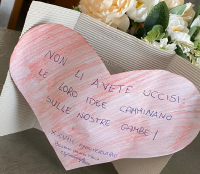 NON LI AVETE UCCISI:
LE LORO IDEE CAMMINANO
SULLE NOSTRE GAMBE!